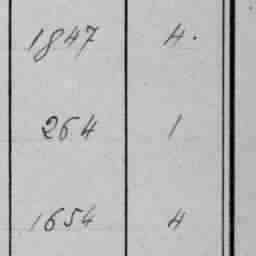 1847 4.
264 1
1654 4